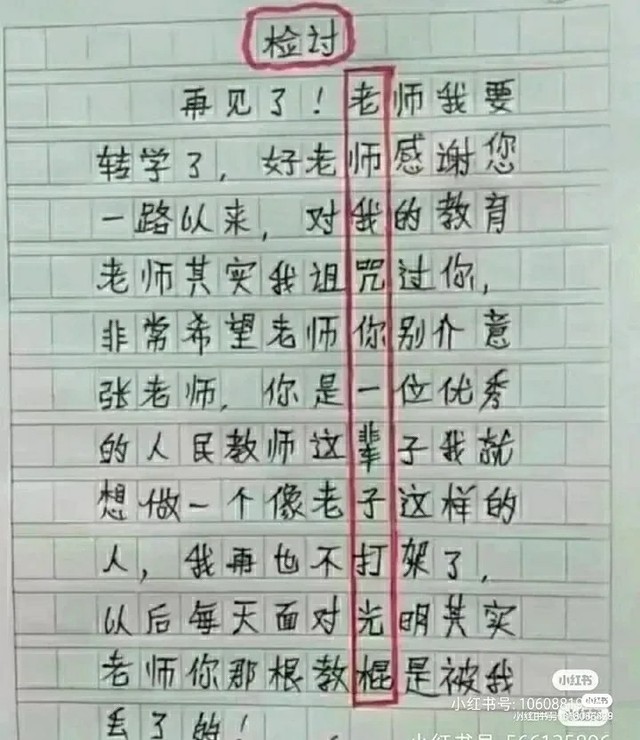 检讨
再见了！老师我要
转学了，好老师感谢您
一路以来，对我的教育
老师其实我诅咒过你，
非常希望老师你别介意
张老师，你是一位优秀
的人民教师这辈子我就
想做一个像老子这样的
人，我再也不打架了，
以后每天面对光明其实
老师你那根教棍是被我
丢了的！
小红书
小红书号:
小红书